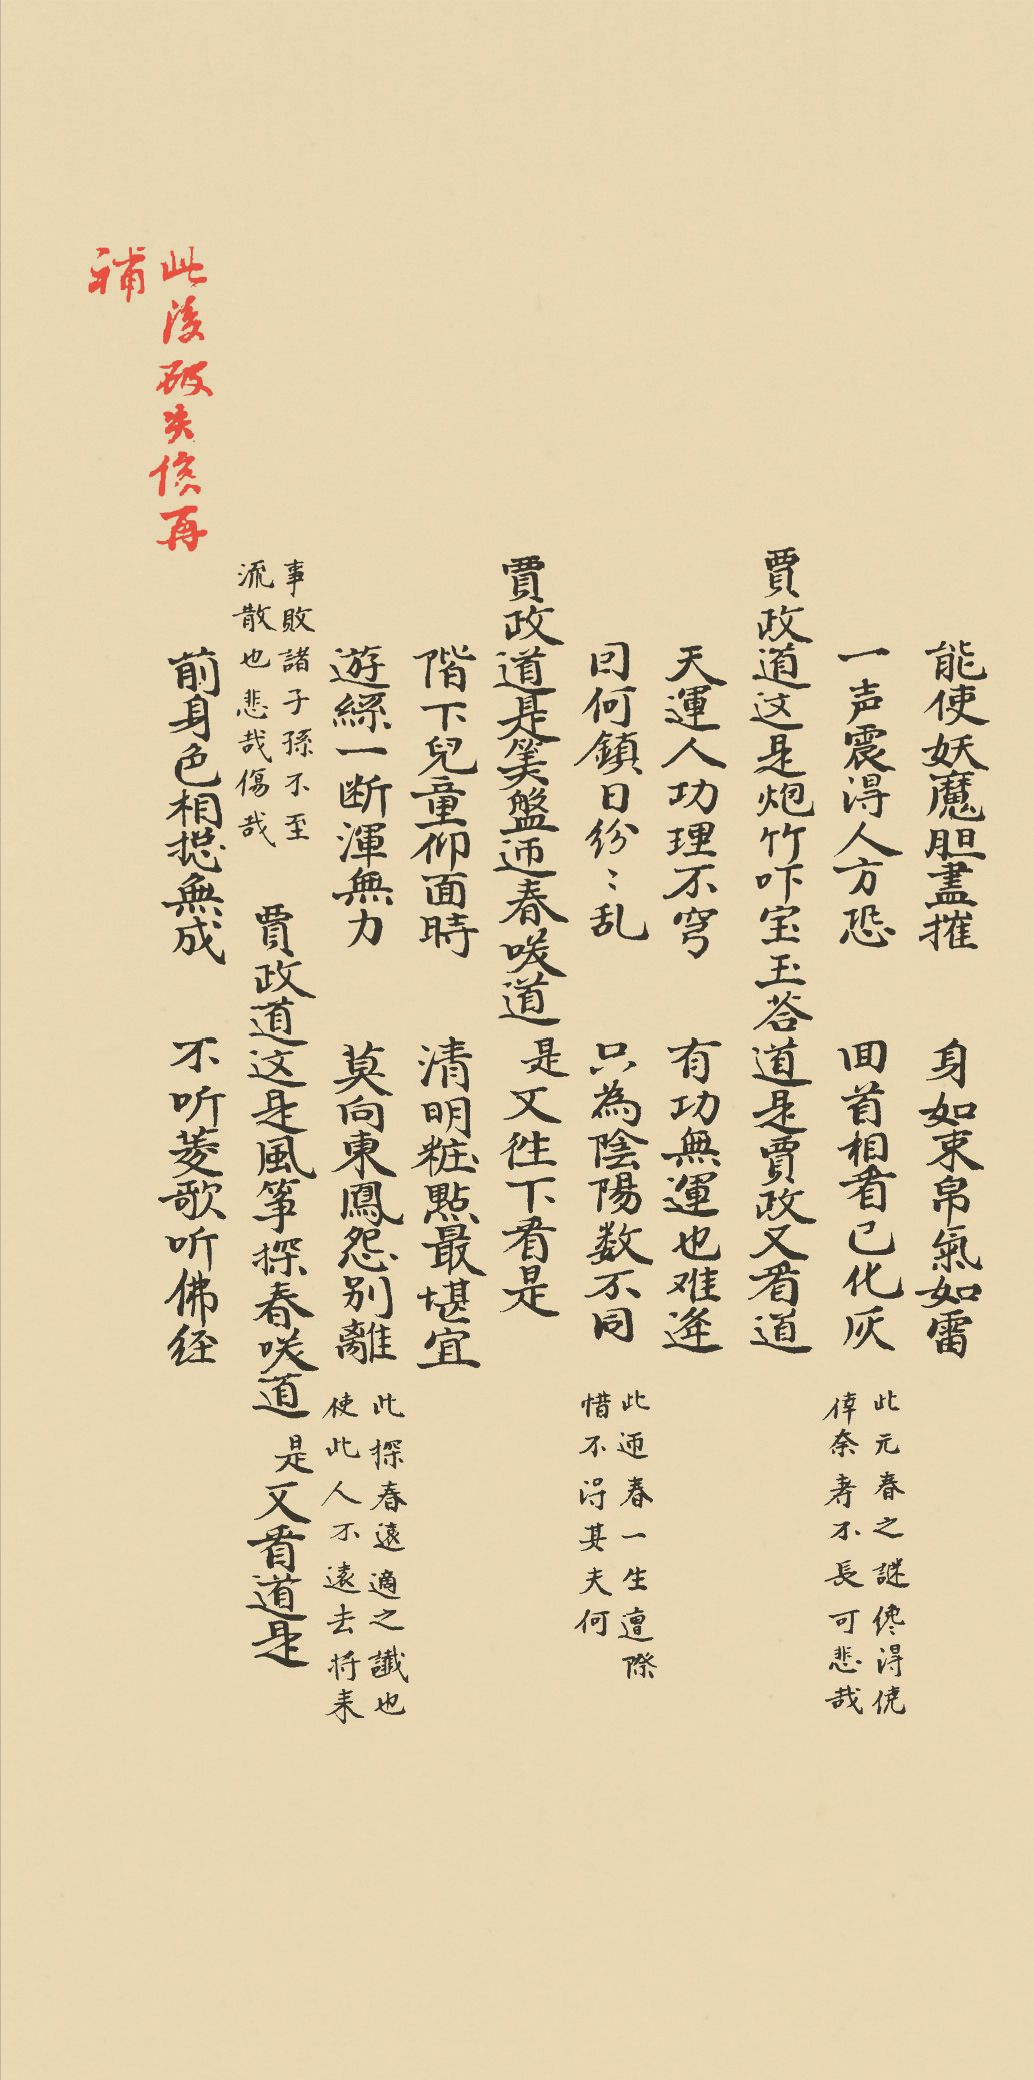 能使妖魔胆盡摧　身如束帛氣如雷
一声震得人方恐　回首相看已化灰
此元春之謎儝得侥
倖奈寿不長可悲哉
賈政道这是炮竹吓宝玉荅道是賈政又看道
天運人功理不窮　有功無運也难逢
因何鎮日紛〻乱　只為陰陽数不同
此迎春一生遭際
惜不得其夫何
賈政道是筭盤迎春咲道是又徃下看是
階下兒童仰面時　清明粧點最堪宜
遊絲一断渾無力　莫向東風怨别離
此探春遠適之讖也
使此人不遠去将来
事敗諸子孫不至
流散也悲哉傷哉
賈政道这是風筝探春咲道是又看道是
前身色相揔無成　不听菱歌听佛经
此後破失俟再
補